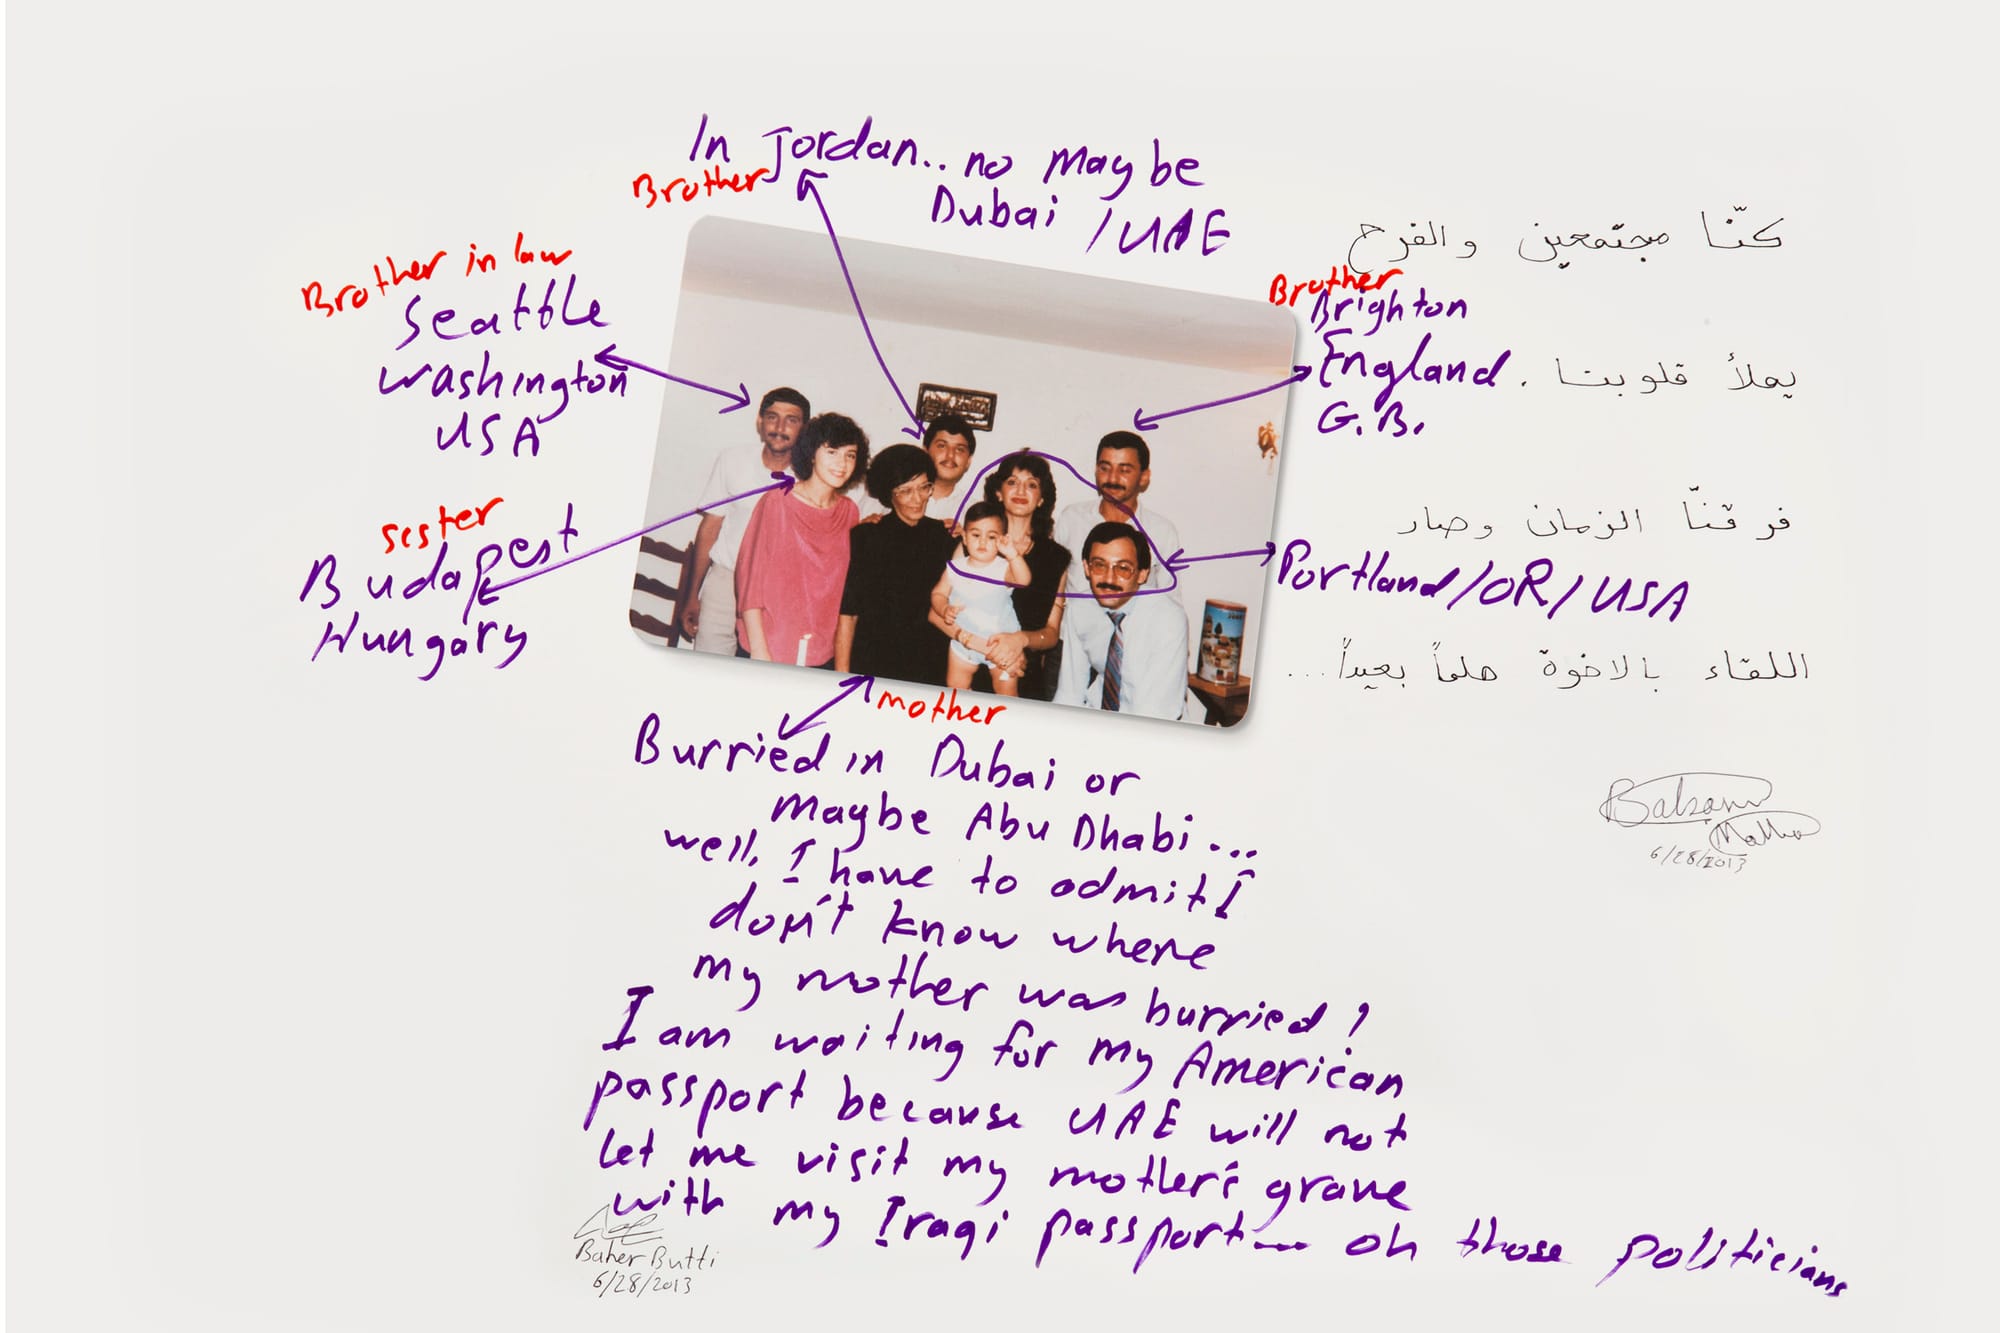 In Jordan.. no Maybe
Dubai / UAE
Brother
Brother in law
Seattle
Washington
USA
Sister
Budapest
Hungary
Brother
Brighton
England
G.B.
Portland/OR/USA
كنّا مجتمعين والفرح
يملأ قلوبنا .
فرقنّا الزمان وصار
اللقاء بالاخوة حلماً بعيداً...
Balsam
6/28/2013
mother
Burried in Dubai or
Maybe Abu Dhabi...
well, I have to admit I
don't know where
my mother was burried !
I am waiting for my American
passport because UAE will not
let me visit my mother's grave
with my Iraqi passport... oh those politicians
Baher Butti
6/28/2013